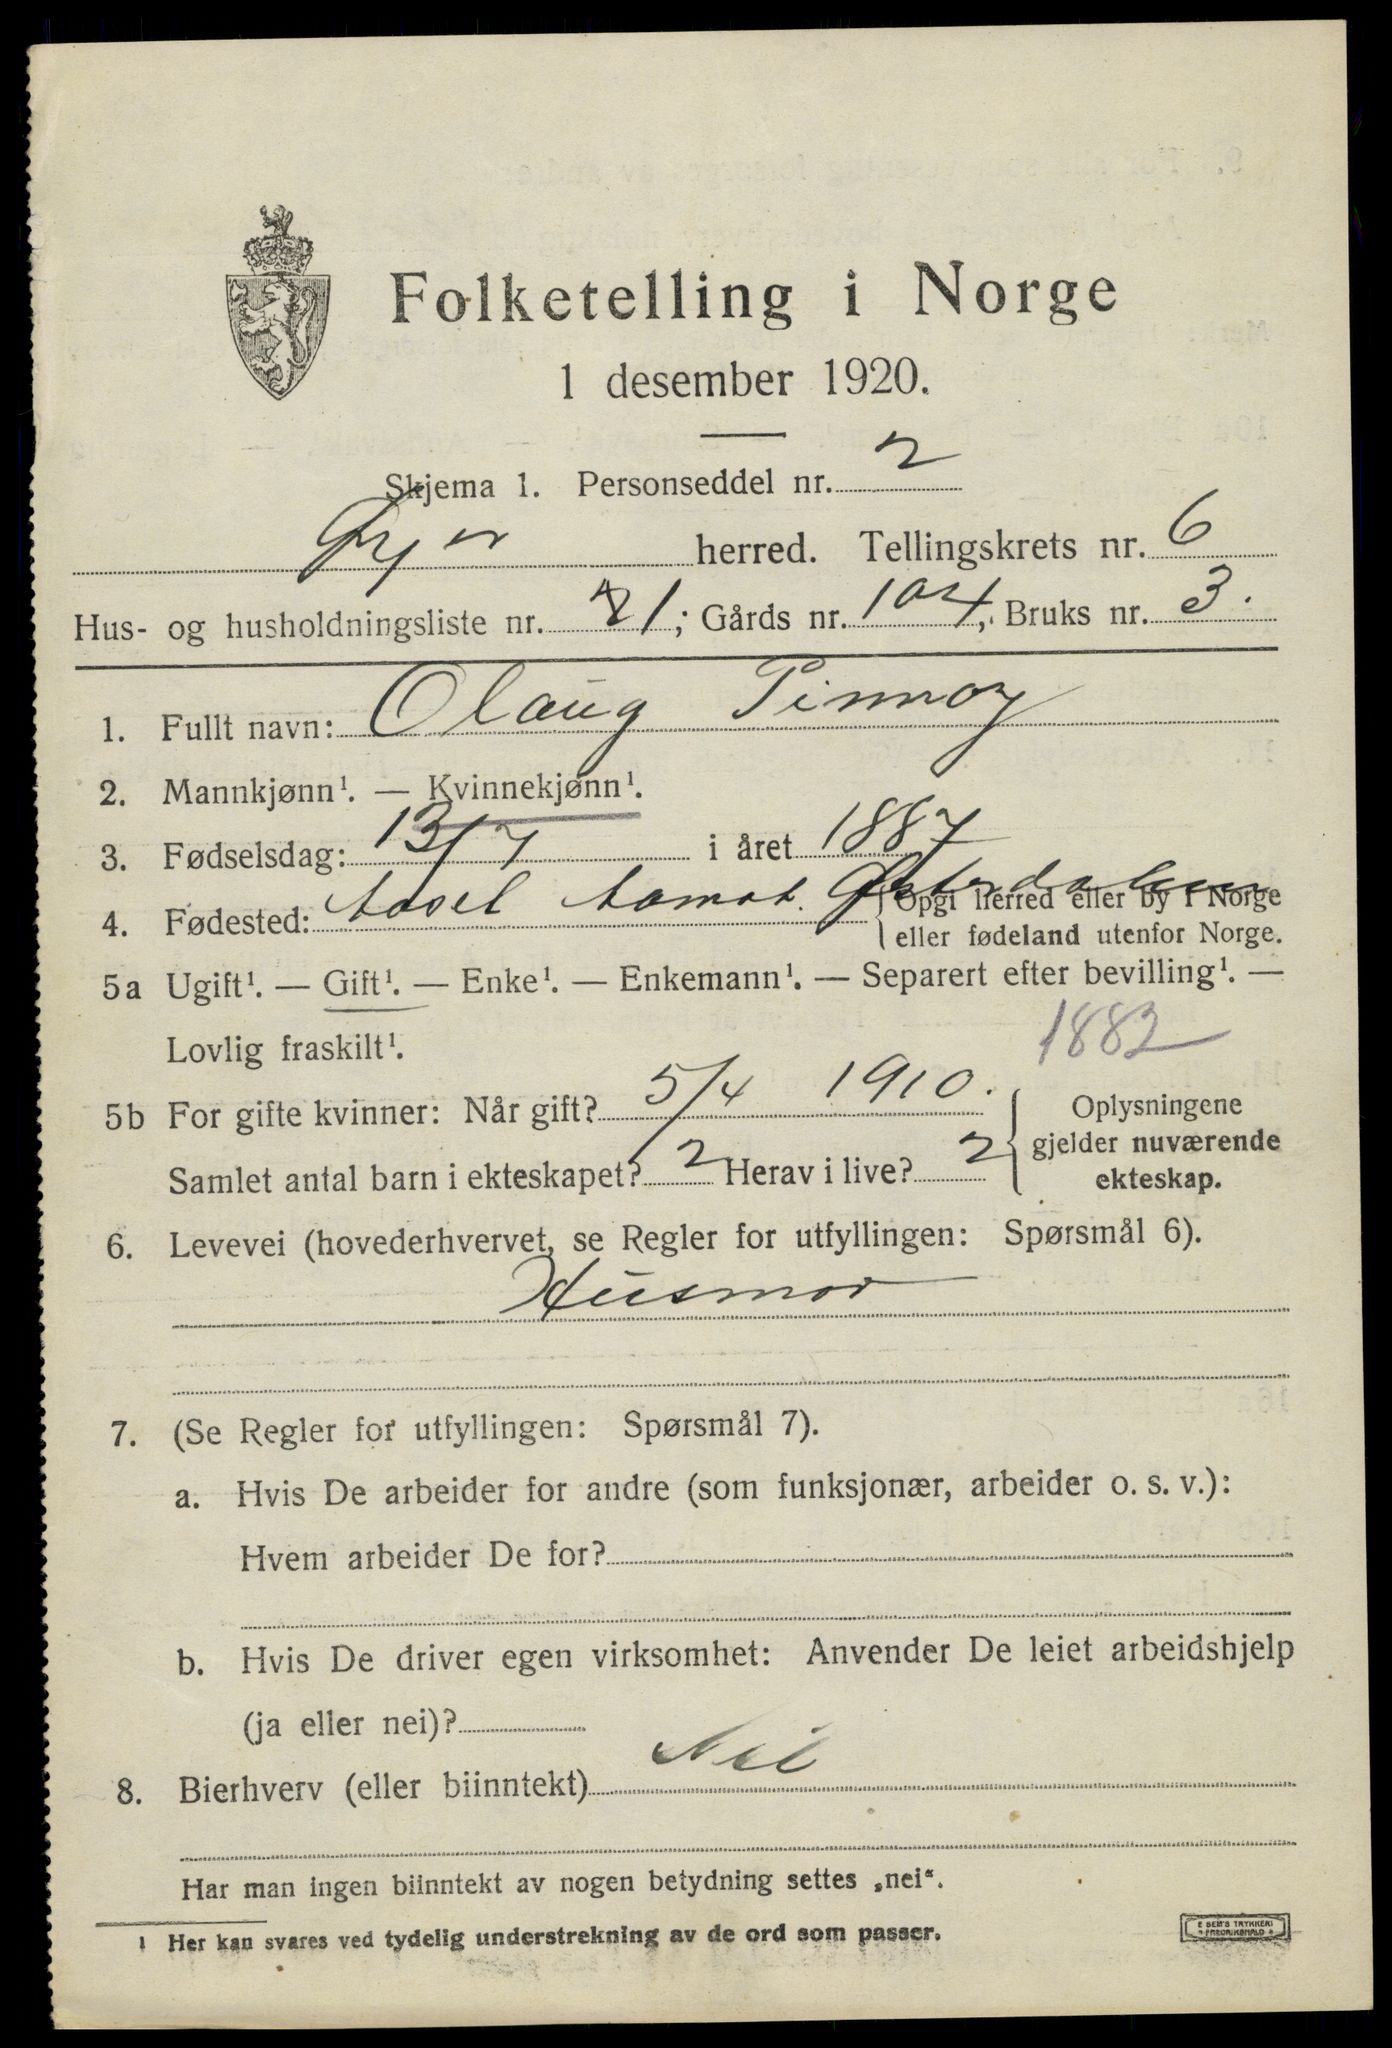 Folketelling i Norge
1 desember 1920.
Skjema 1. Personseddel nr. 2
Øyer herred. Tellingskrets nr. 6
Hus- og husholdningsliste nr. 21; Gårds nr. 104, Bruks nr. 3.
1. Fullt navn: Olaug
2. Mannkjønn¹. — Kvinnekjønn¹.
3. Fødselsdag: 13/7 i året 1887
4. Fødested: Aasel Aamot. Østerdalen {Opgi herred eller by i Norge
eller fødeland utenfor Norge.
5a Ugift¹. — Gift¹. — Enke¹. — Enkemann¹. — Separert efter bevilling¹. —
Lovlig fraskilt¹. 1882
5b For gifte kvinner: Når gift? 5/4 1910. Oplysningene
gjelder nuværende
Samlet antal barn i ekteskapet? 2 Herav i live? 2 ekteskap.
6. Levevei (hovederhvervet, se Regler for utfyllingen: Spørsmål 6).
Husmor
7. (Se Regler for utfyllingen: Spørsmål 7).
a. Hvis De arbeider for andre (som funksjonær, arbeider o. s. v.):
Hvem arbeider De for?
b. Hvis De driver egen virksomhet: Anvender De leiet arbeidshjelp
(ja eller nei)?
8. Bierhverv (eller biinntekt) Nei
Har man ingen biinntekt av nogen betydning settes „nei“.
1 Her kan svares ved tydelig understrekning av de ord som passer.
E SEM'S TRYKKERI
FREDRIKSHALD